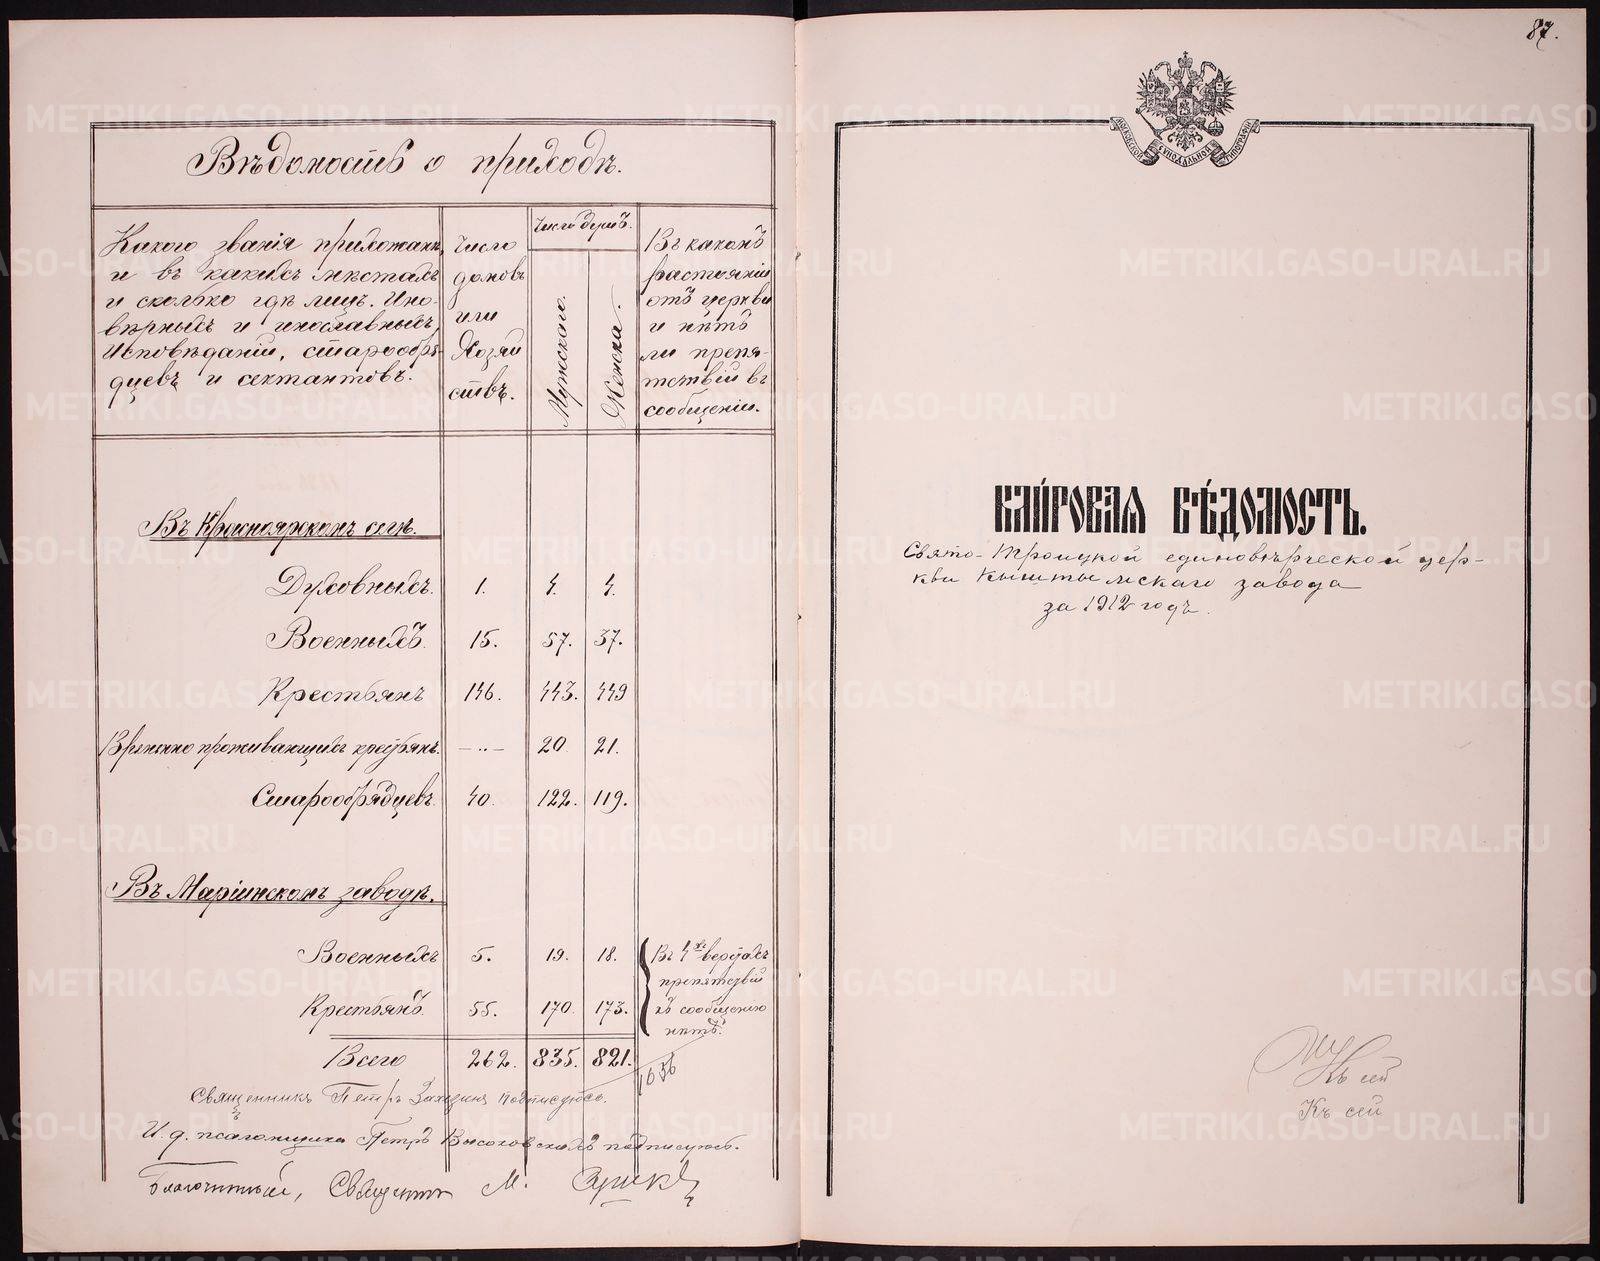 Вѣдомость о приходѣ.
Какого званія прихожане,
и въ какихъ мѣстахъ
и сколько гдѣ лицъ. Ино-
вѣрныхъ и инославныхъ,
Исповѣданій, старообря-
дцевъ и сектантовъ.
Число
домовъ
или
Хозяй
ствъ.
Число душъ.
Мужскаго.
Женска.
Въ какомъ
растояніи
отъ церкви
и нѣтъ
ли препя-
тствій въ
сообщеніи.
Въ Красноярскомъ селѣ.
Духовныхъ. 1. 4. 4.
Военныхъ. 15. 57. 37.
Крестьянъ 146. 443. 449
Временно проживающихъ крестьянъ. — „ — 20. 21.
Старообрядцевъ. 40. 122. 119.
Въ Маріинскомъ заводѣ.
Военныхъ 5. 19. 18.
Крестьянъ. 55. 170. 173.
Въ 4хъ верстахъ
препятствій
къ сообщенію
нѣтъ.
Всего 262. 835. 821.
1656
Священникъ Петръ подписуюсь.
И. д. псаломщика Петръ Высоковскихъ подписуюсь.
Благочинный, Священникъ М.
87.
МОСКОВСКОЙ СѴНОДАЛЬНОЙ ТИПОГРАФІИ
КЛИРОВАЯ ВѢДОМОСТЬ.
Свято-Троицкой единовѣрческой цер-
кви Кыштымскаго завода
за 1912 годъ.
Къ сей
Къ сей
METRIKI.GASO-URAL.RU